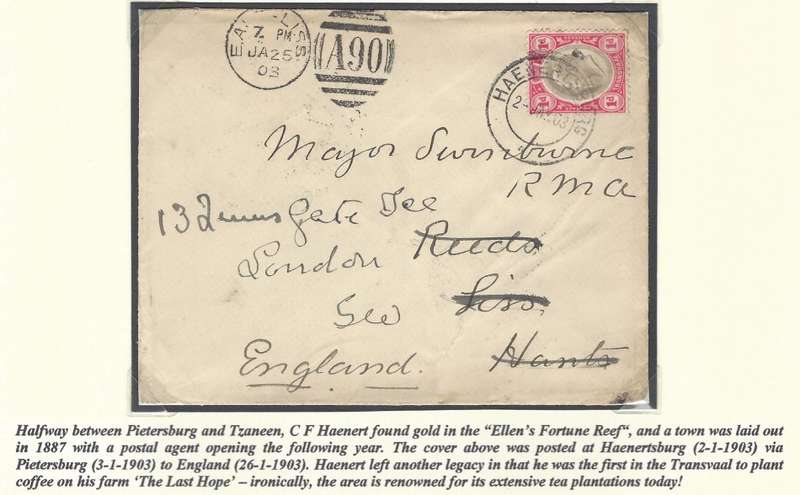 EAST LISS
7 PM
JA 25
03
A90
1D
1D
HAENERTSBURG
2-JAN.03
Major Swinburne
RMA
13 Queens Gate Tce
Reeds
London
Liss
SW
Hants
England.
Halfway between Pietersburg and Tzaneen, C F Haenert found gold in the “Ellen’s Fortune Reef“, and a town was laid out
in 1887 with a postal agent opening the following year. The cover above was posted at Haenertsburg (2-1-1903) via
Pietersburg (3-1-1903) to England (26-1-1903). Haenert left another legacy in that he was the first in the Transvaal to plant
coffee on his farm ‘The Last Hope’ – ironically, the area is renowned for its extensive tea plantations today!